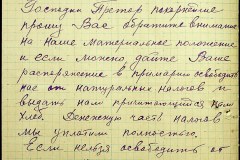 Господин Претор покорнейше
прошу Вас обратить внимание
на наше материальное положение
и если можно дайте Ваше
распоряжение в примарию освободить
нас от натуральных налогов и
выдать нам причитающийся нам
хлеб. Денежную часть налогов
мы уплатим полностью.
Если нельзя освободить от